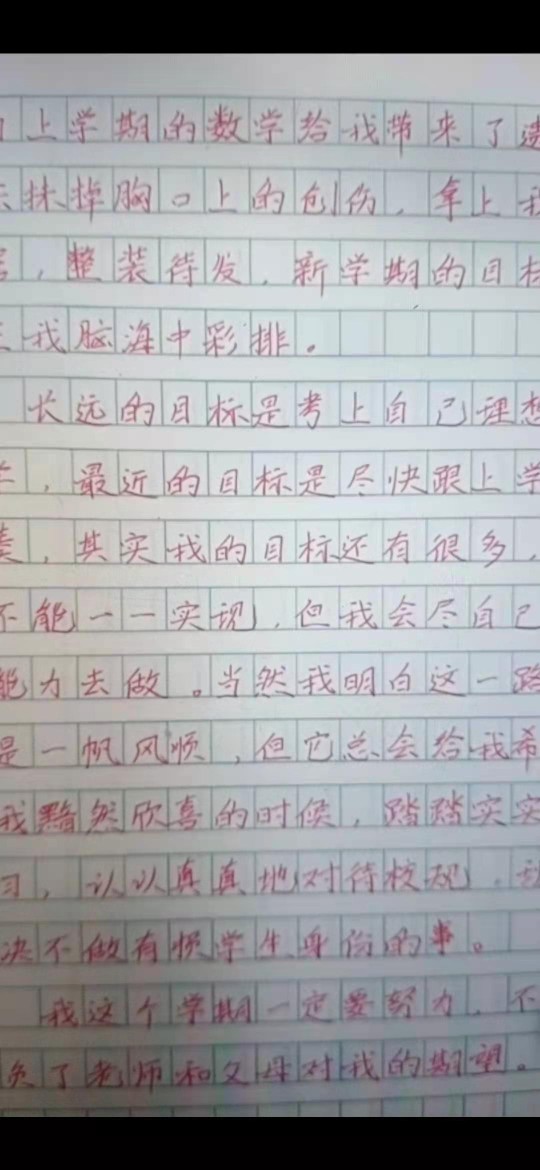 上学期的数学给我带来了遗
抹掉胸口上的创伤，拿上我
，整装待发，新学期的目标
我脑海中彩排。
长远的目标是考上自己理想
，最近的目标是尽快跟上学
，其实我的目标还有很多，
不能一一实现，但我会尽自己
能力去做。当然我明白这一路
是一帆风顺，但它总会给我希
我黯然欣喜的时候，踏踏实实
习，认认真真地对待校规，
决不做有损学生身份的事。
我这个学期一定要努力，不
负了老师和父母对我的期望。